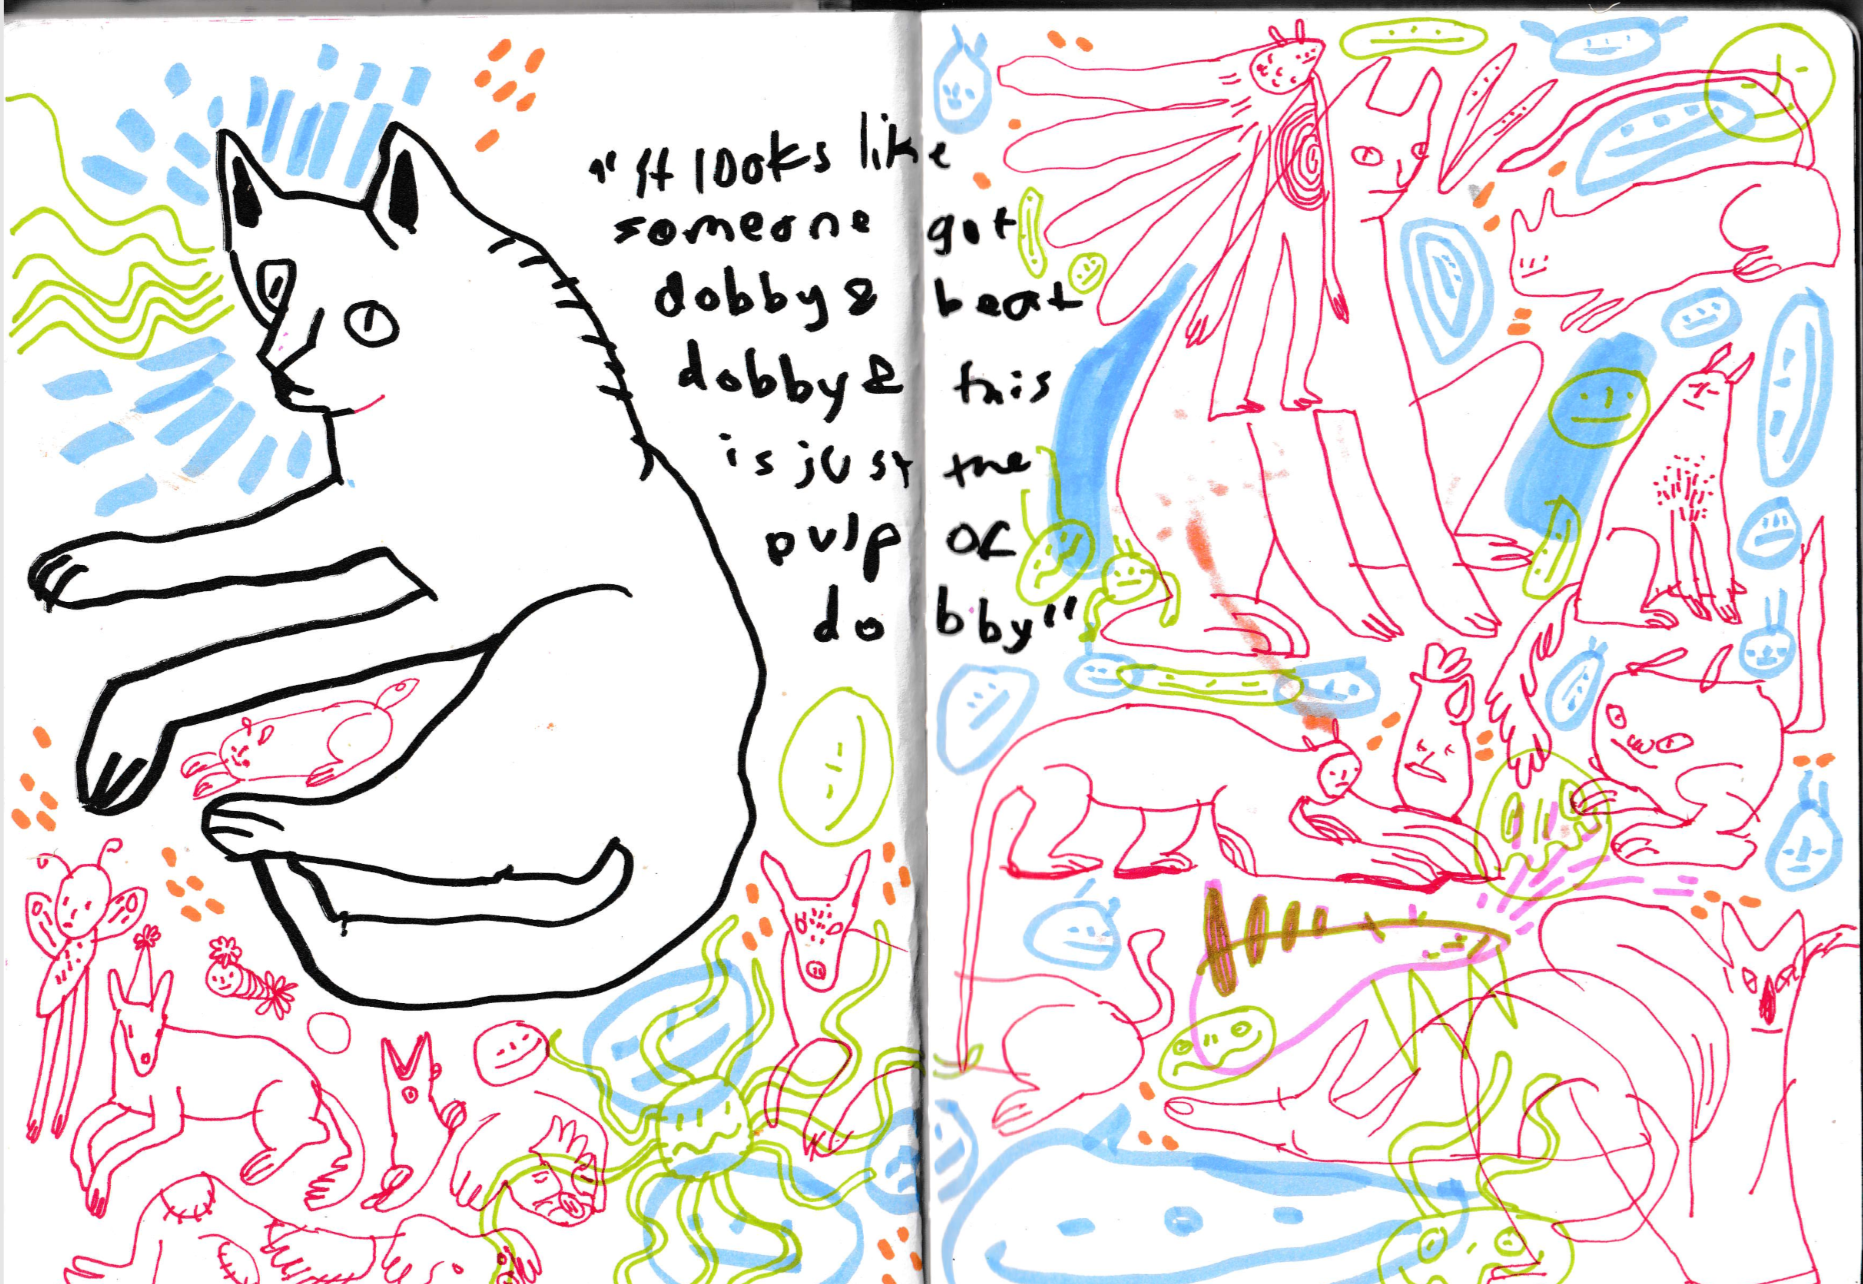 "It looks like
someone got
dobby & beat
dobby & this
is just the
pulp of
dobby"